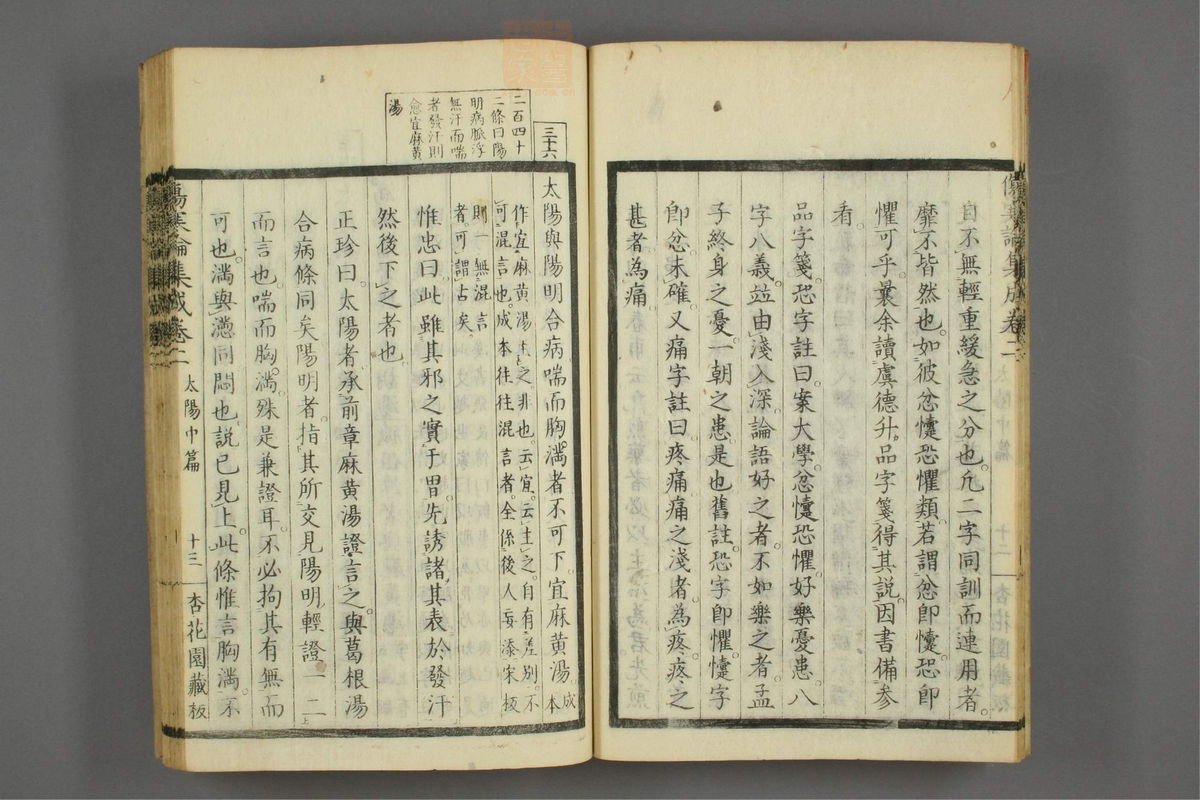 自不無輕重緩急之分也凢二字同訓而連用者。
靡不皆然也。如彼忿懥恐懼類。若謂忿即懥。恐即
懼可乎。曩余讀虞德升。品字箋得其說。因書備参
看。
品字箋。恐字註曰。案大學忿懥恐懼。好樂憂患。八
字八義。竝由淺入深。論語好之者。不如樂之者。孟
子終身之憂。一朝之患是也。舊註。恐字即懼。懥字
即忿。未確。又痛字註曰。疼痛痛之淺者。為疼。疼之
甚者。為痛。
三十六
二百四十
二條曰陽
明病脈浮
無汗而喘
者發汗則
愈宜麻黄
湯
太陽與陽明合病喘而胸滿者不可下。宜麻黄湯。成本
作宜麻黄湯主之非也。云宜。云主之。自有差別。不
可混言也。成本往往混言者。全係後人妄添宋板
則一無混言
者。可謂古矣
惟忠曰此雖其邪之實于胃。先誘諸其表於發汗
然後下之者也
正珍曰。太陽者承前章麻黄湯證言之。與葛根湯
合病條同矣陽明者。指其所交見陽明輕證一二上
而言也。喘而胸滿。殊是兼證耳。不必拘其有無而
可也。滿與懣同悶也。說已見上。此條惟言胸滿。不
傷寒論集成卷二 太陽中篇 十三 杏花園藏板